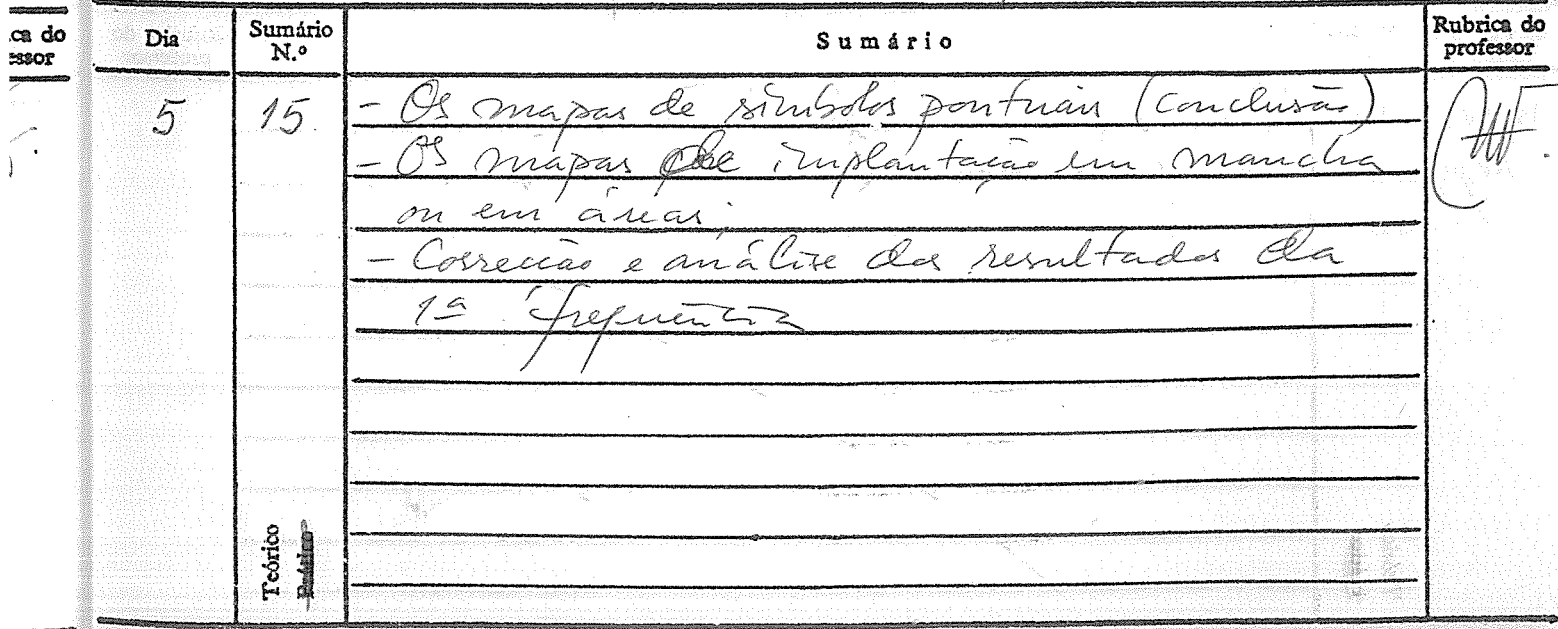 ca do
essor
Dia
Sumário
N.º
Sumário
Rubrica do
professor
5
15
- Os mapas de símbolos pontuais (conclusão)
- Os mapas de implantação em mancha
ou em áreas;
- Correcção e análise dos resultados da
1ª frequência
Teórico
Prático